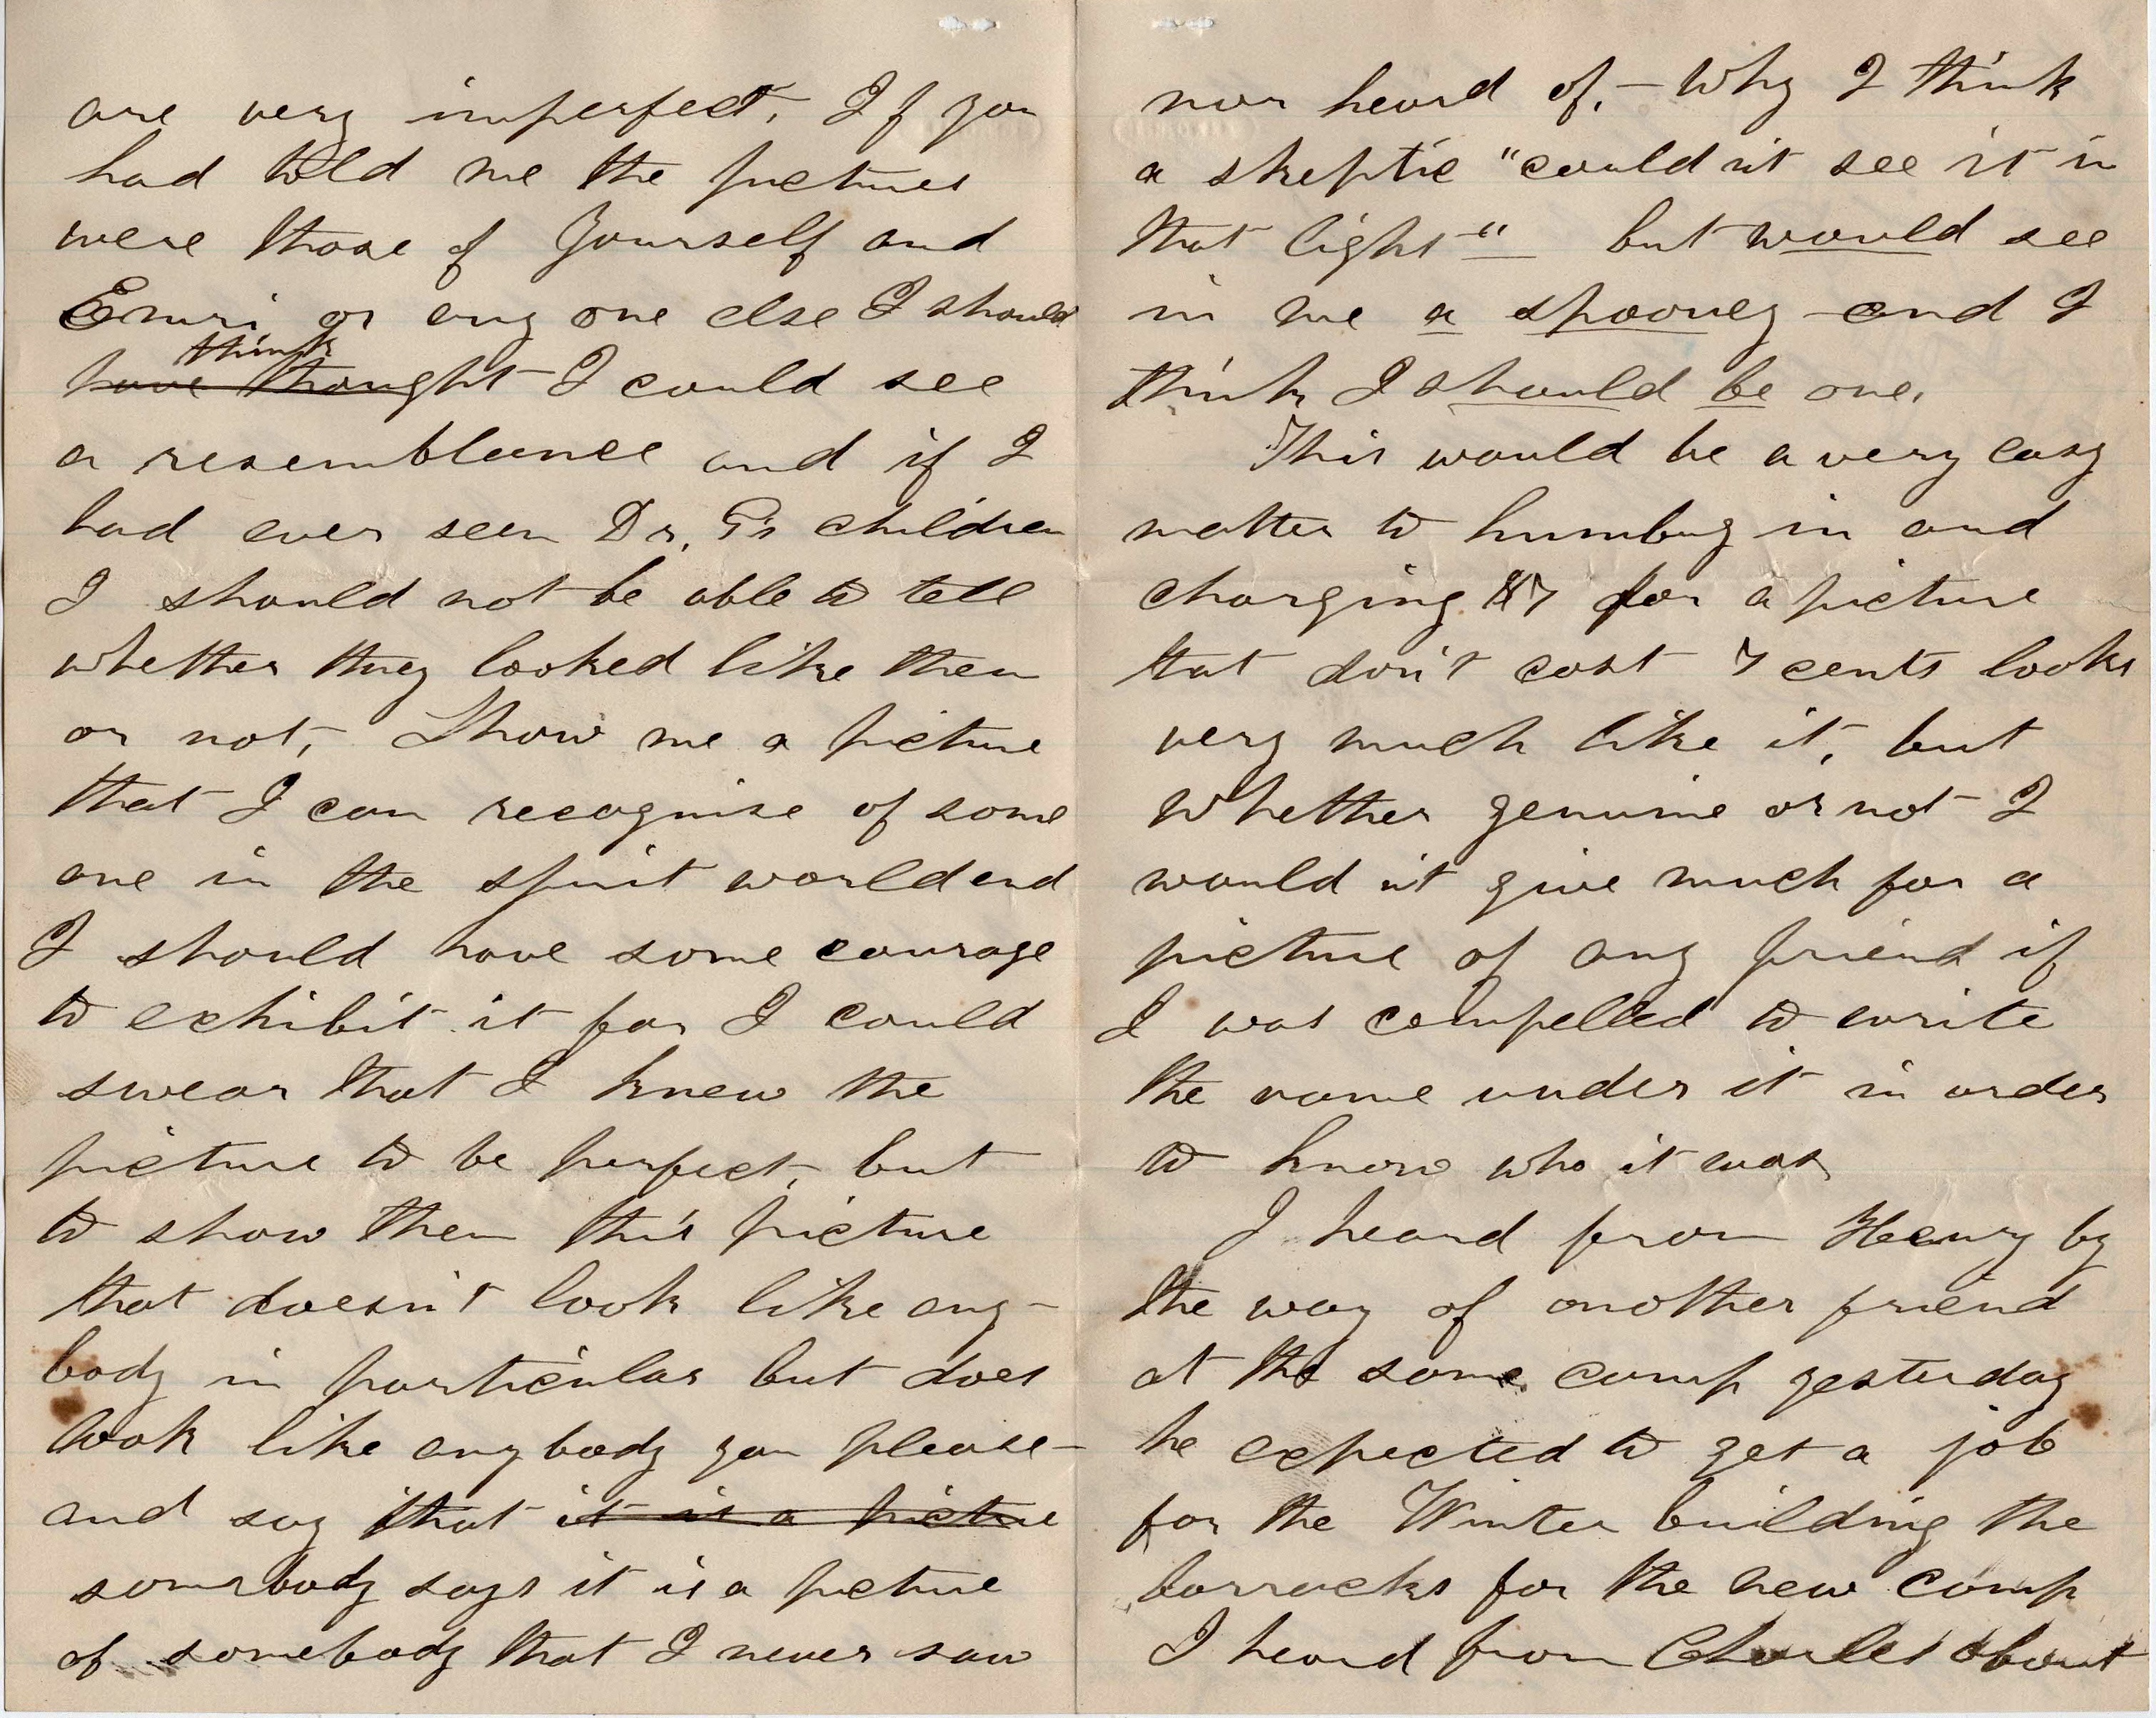 are very imperfect. If you
had told me the pictures
were those of Yourself and
Emri or any one else I should
think
have thought I could see
a resemblance and if I
had ever seen Dr. G's children
I should not be able to tell
whether they looked like them
or not, Show me a picture
that I can recognise of some
one in the spirit world and
I should have some courage
to exhibit it for I could
swear that I knew the
picture to be perfect, but
to show them this picture
that doesn't look like any-
body in particular but does
look like anybody you please-
and say that it is a picture
somebody says it is a picture
of somebody that I never saw
nor heard of, - Why I think
a skeptic "could nt see it in
that light" but would see
in me a spooney and I
think I should be one.
This would be a very easy
matter to humbug in and
charging $7 for a picture
that don't cost 7 cents looks
very much like it, but
whether genuine or not I
would nt give much for a
picture of any friend if
I was compelled to write
the name under it in order
to know who it was
I heard from Henry by
the way of another friend
at the same camp yesterday
he expected to get a job
for the Winter building the
barracks for the new camp
I heard from Charles about